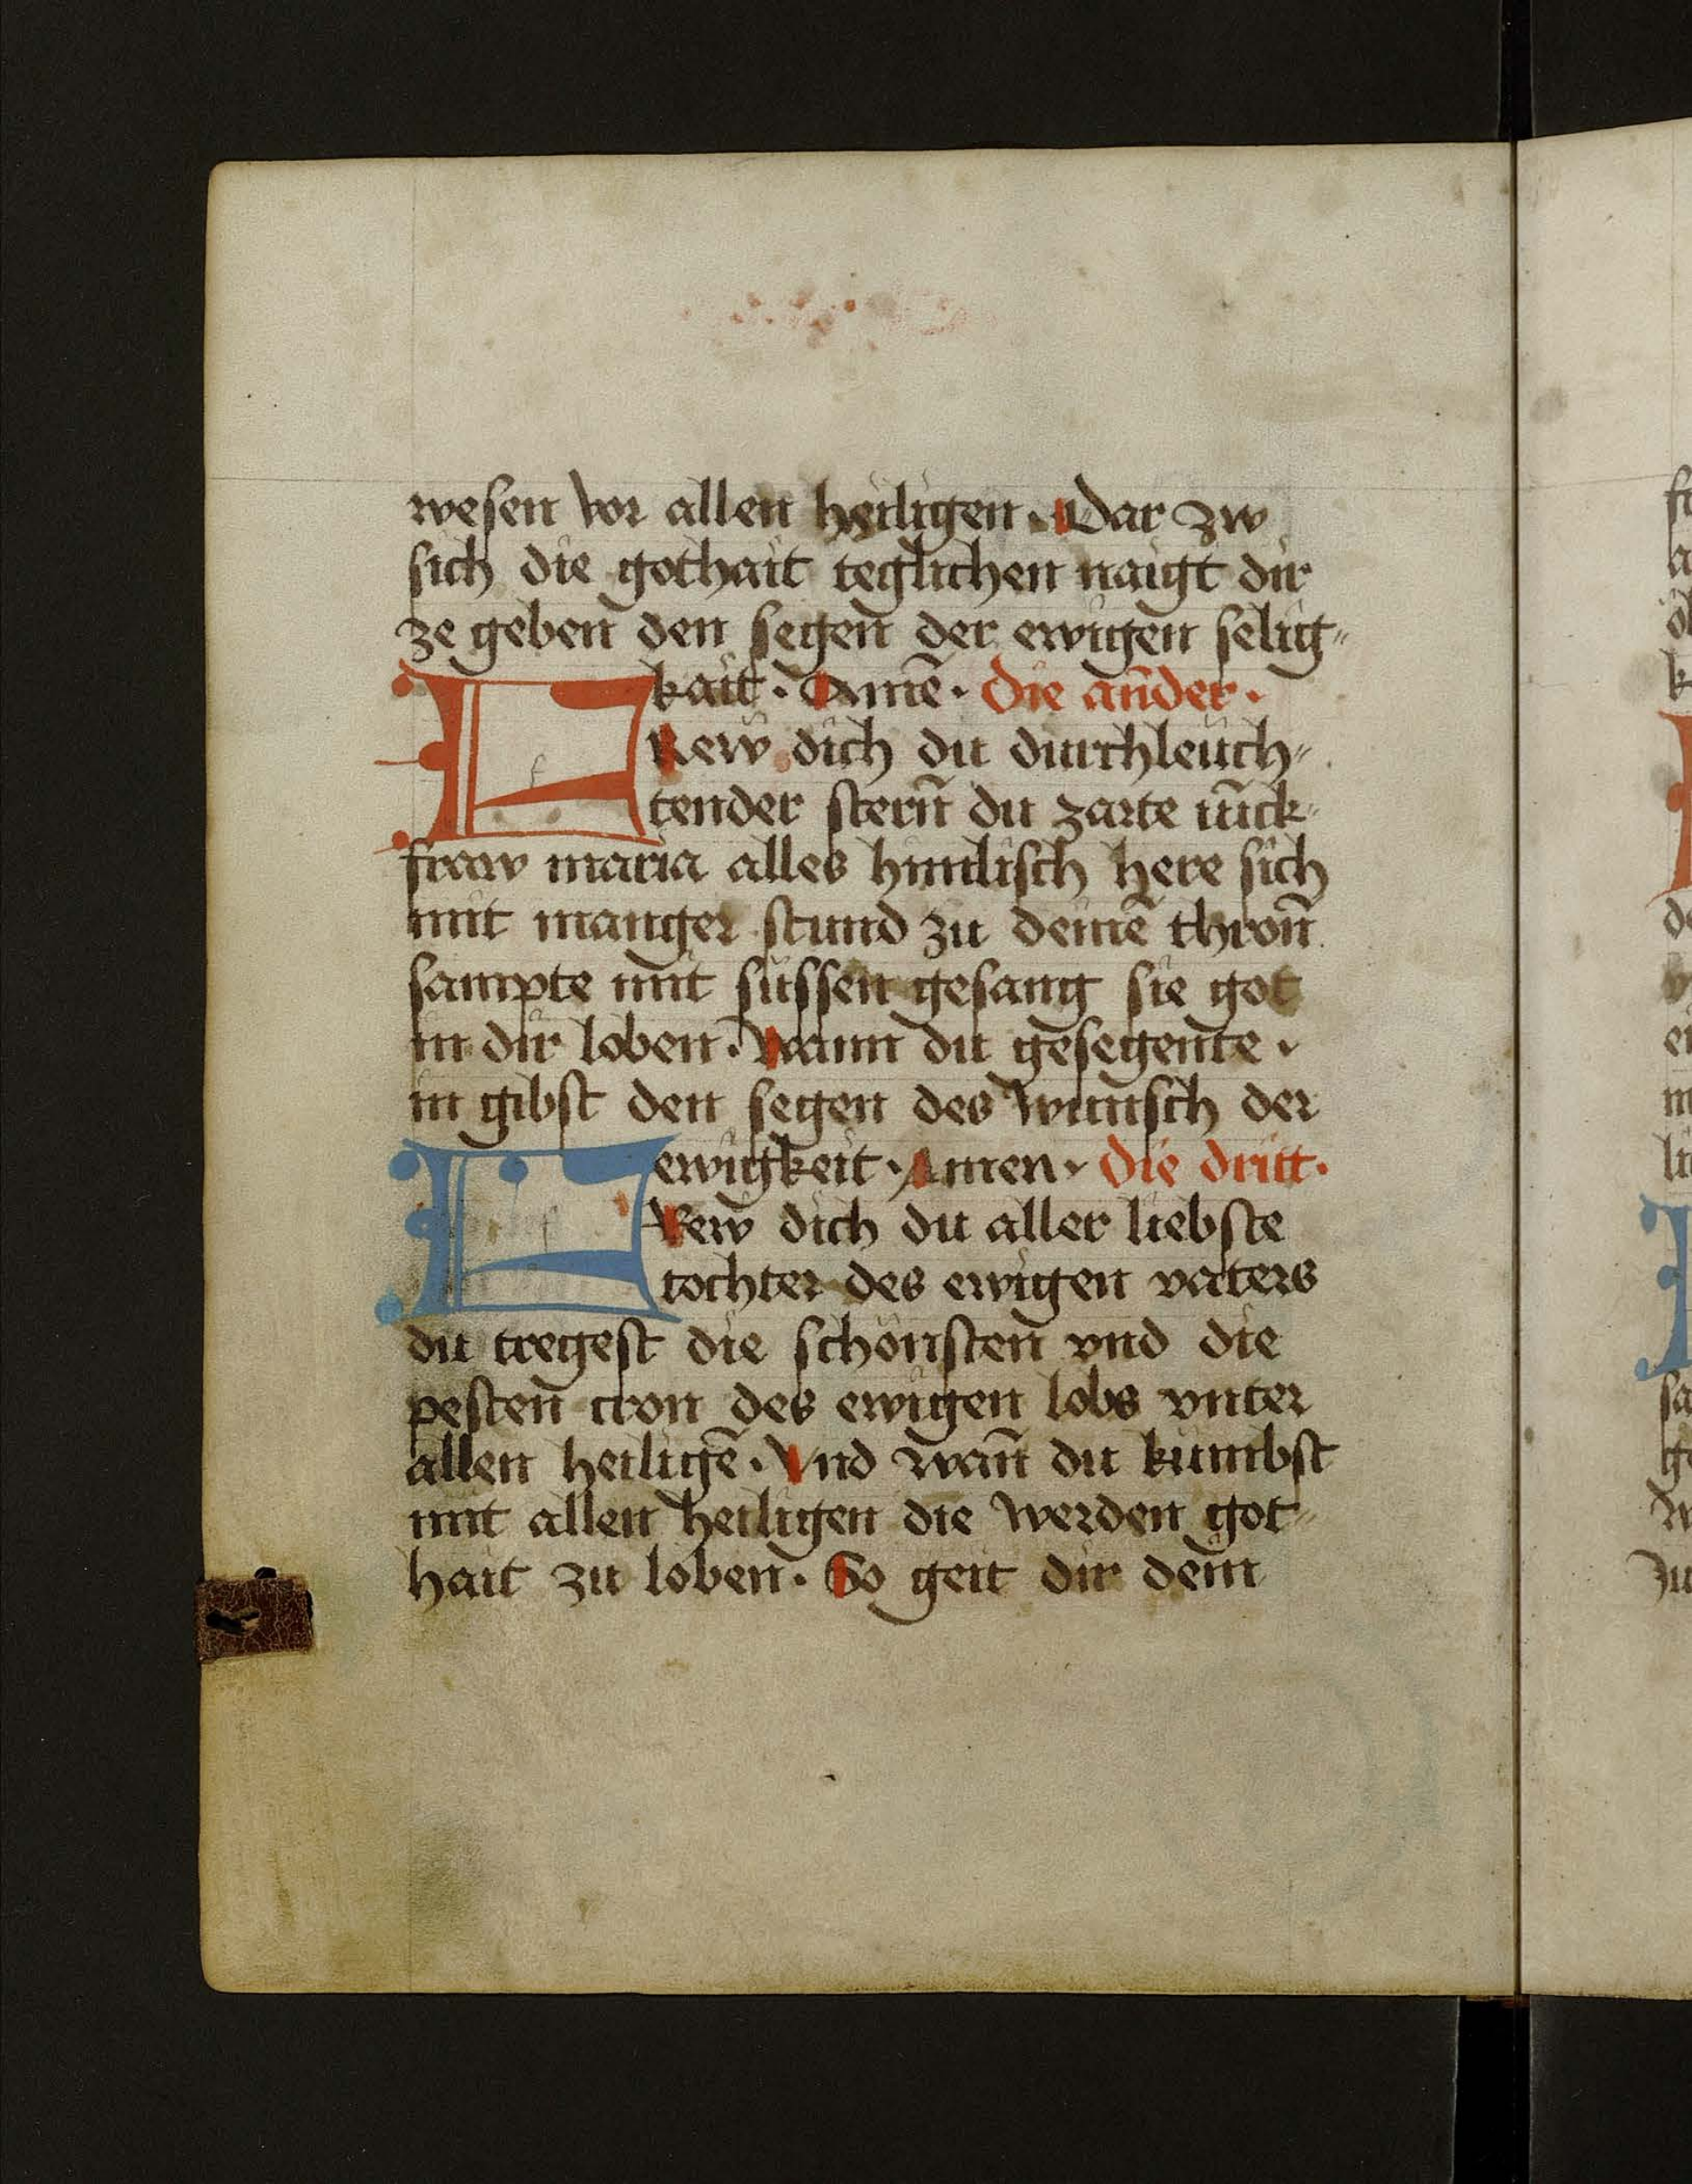 wesen vor allen heiligen. Dar zw
sich die gothait teglichen naigt dir
ze geben den segen der ewigen selig〃
kait. Amē. Die ander.
FRew dich du durchleuch〃
tender stern̄ du zarte iūck〃
fraw maria alles himlisch here sich
mit manger stund zu deinē thron̄
sampte mit süssen gesang sie got
in dir loben. Wann du gesegente.
in gibst den segen des wunsch der
ewigkeit. Amen. Die dritt.
FRew dich du aller liebste
tochter des ewigen vaters
du tregest die schönsten vnd die
pesten cron des ewigen lobs vnter
allen heiligē. Vnd wan̄ du kumbst
mit allen heiligen die werden got〃
hait zu loben. So geit dir dein